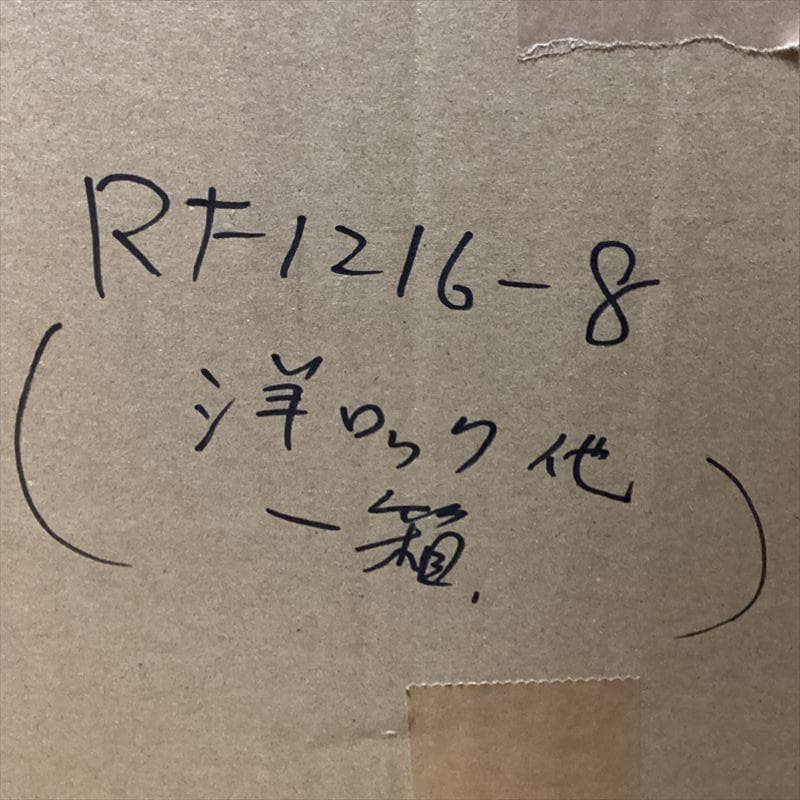 RF1216-8
(洋ロック他
一箱.)